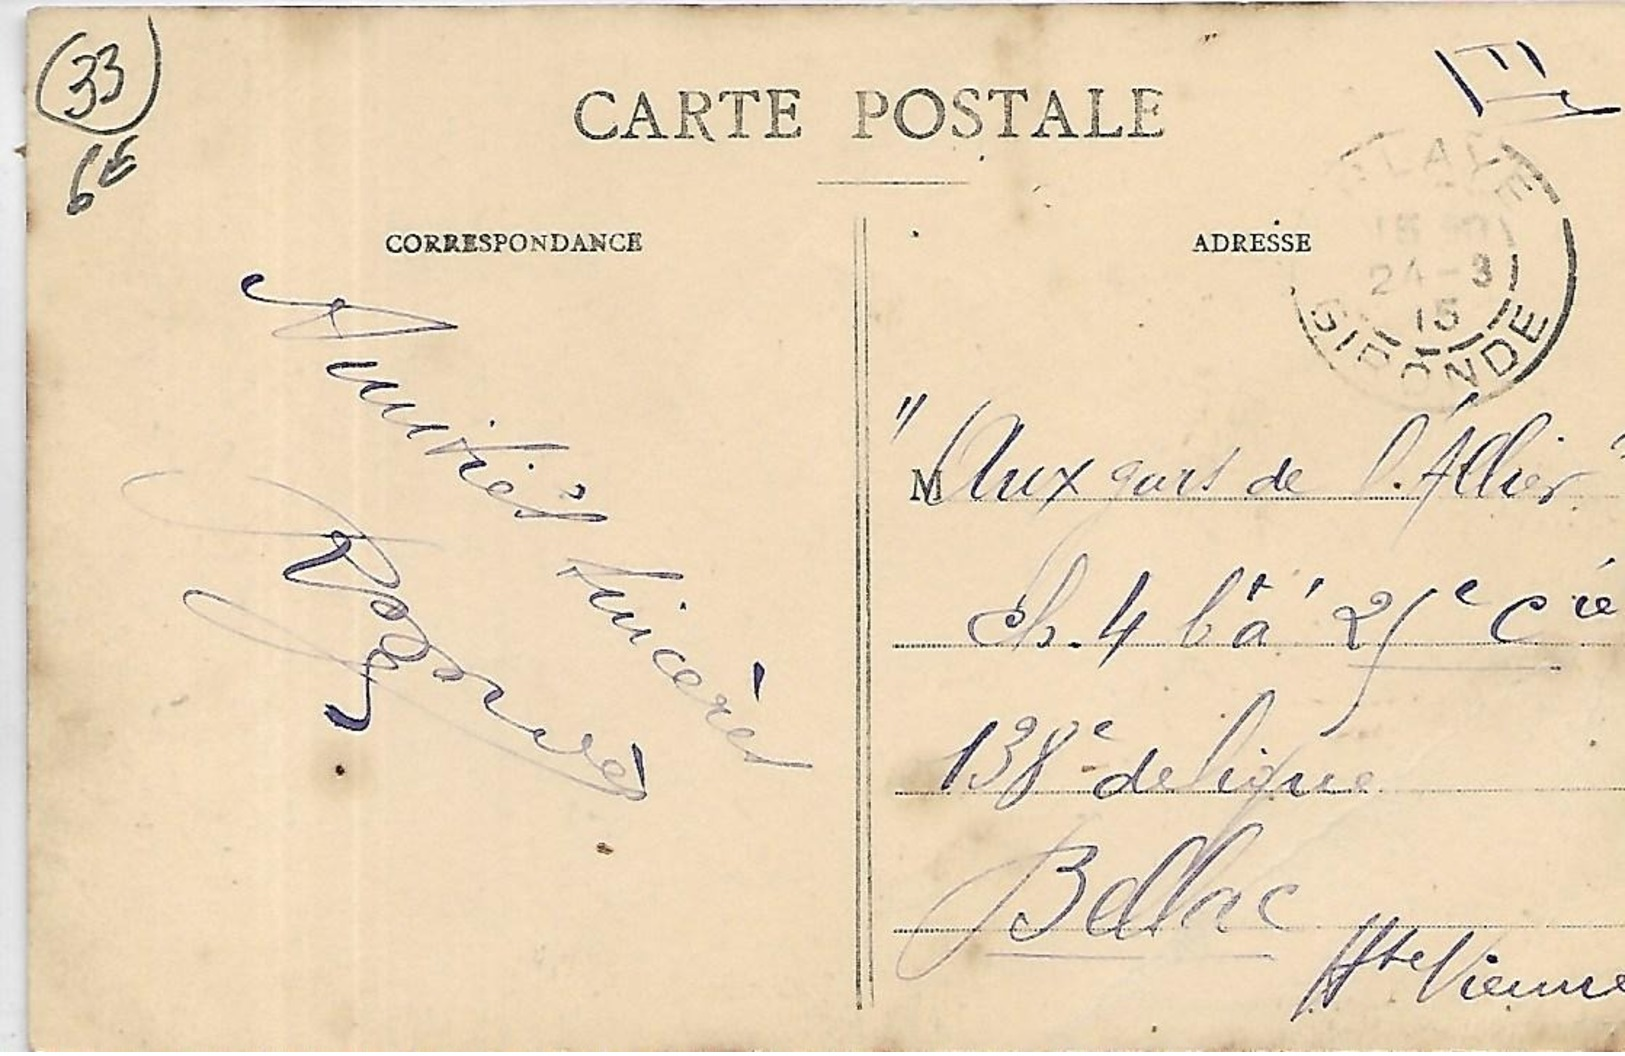 33
6E
CARTE POSTALE
CORRESPONDANCE
ADRESSE
BLAYE
24-3
15
GIRONDE
Amitiés sincères
M "Aux gars de l'Allier"
Ch. 4 bat 25e Cie
138e de ligne
Bellac
Hte Vienne